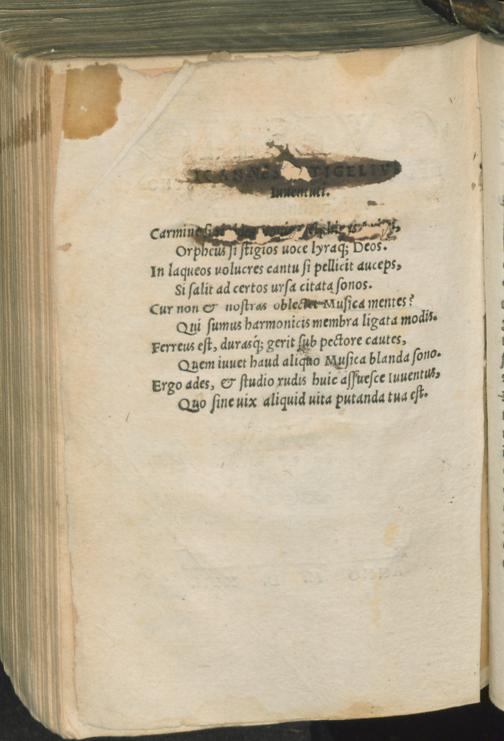 IOANNES STIGELIVS
Iuuentuti.
Carmine si
Orpheus si stigios uoce lyraq; Deos.
In laqueos uolucres cantu si pellicit auceps,
Si salit ad certos ursa citata sonos.
Cur non & nostras oblectet Musica mentes?
Qui sumus harmonicis membra ligata modis.
Ferreus est, durasq; gerit sub pectore cautes,
Quem iuuet haud aliquo Musica blanda sono.
Ergo ades, & studio rudis huic assuesce Iuuentus,
Quo sine uix aliquid uita putanda tua est.